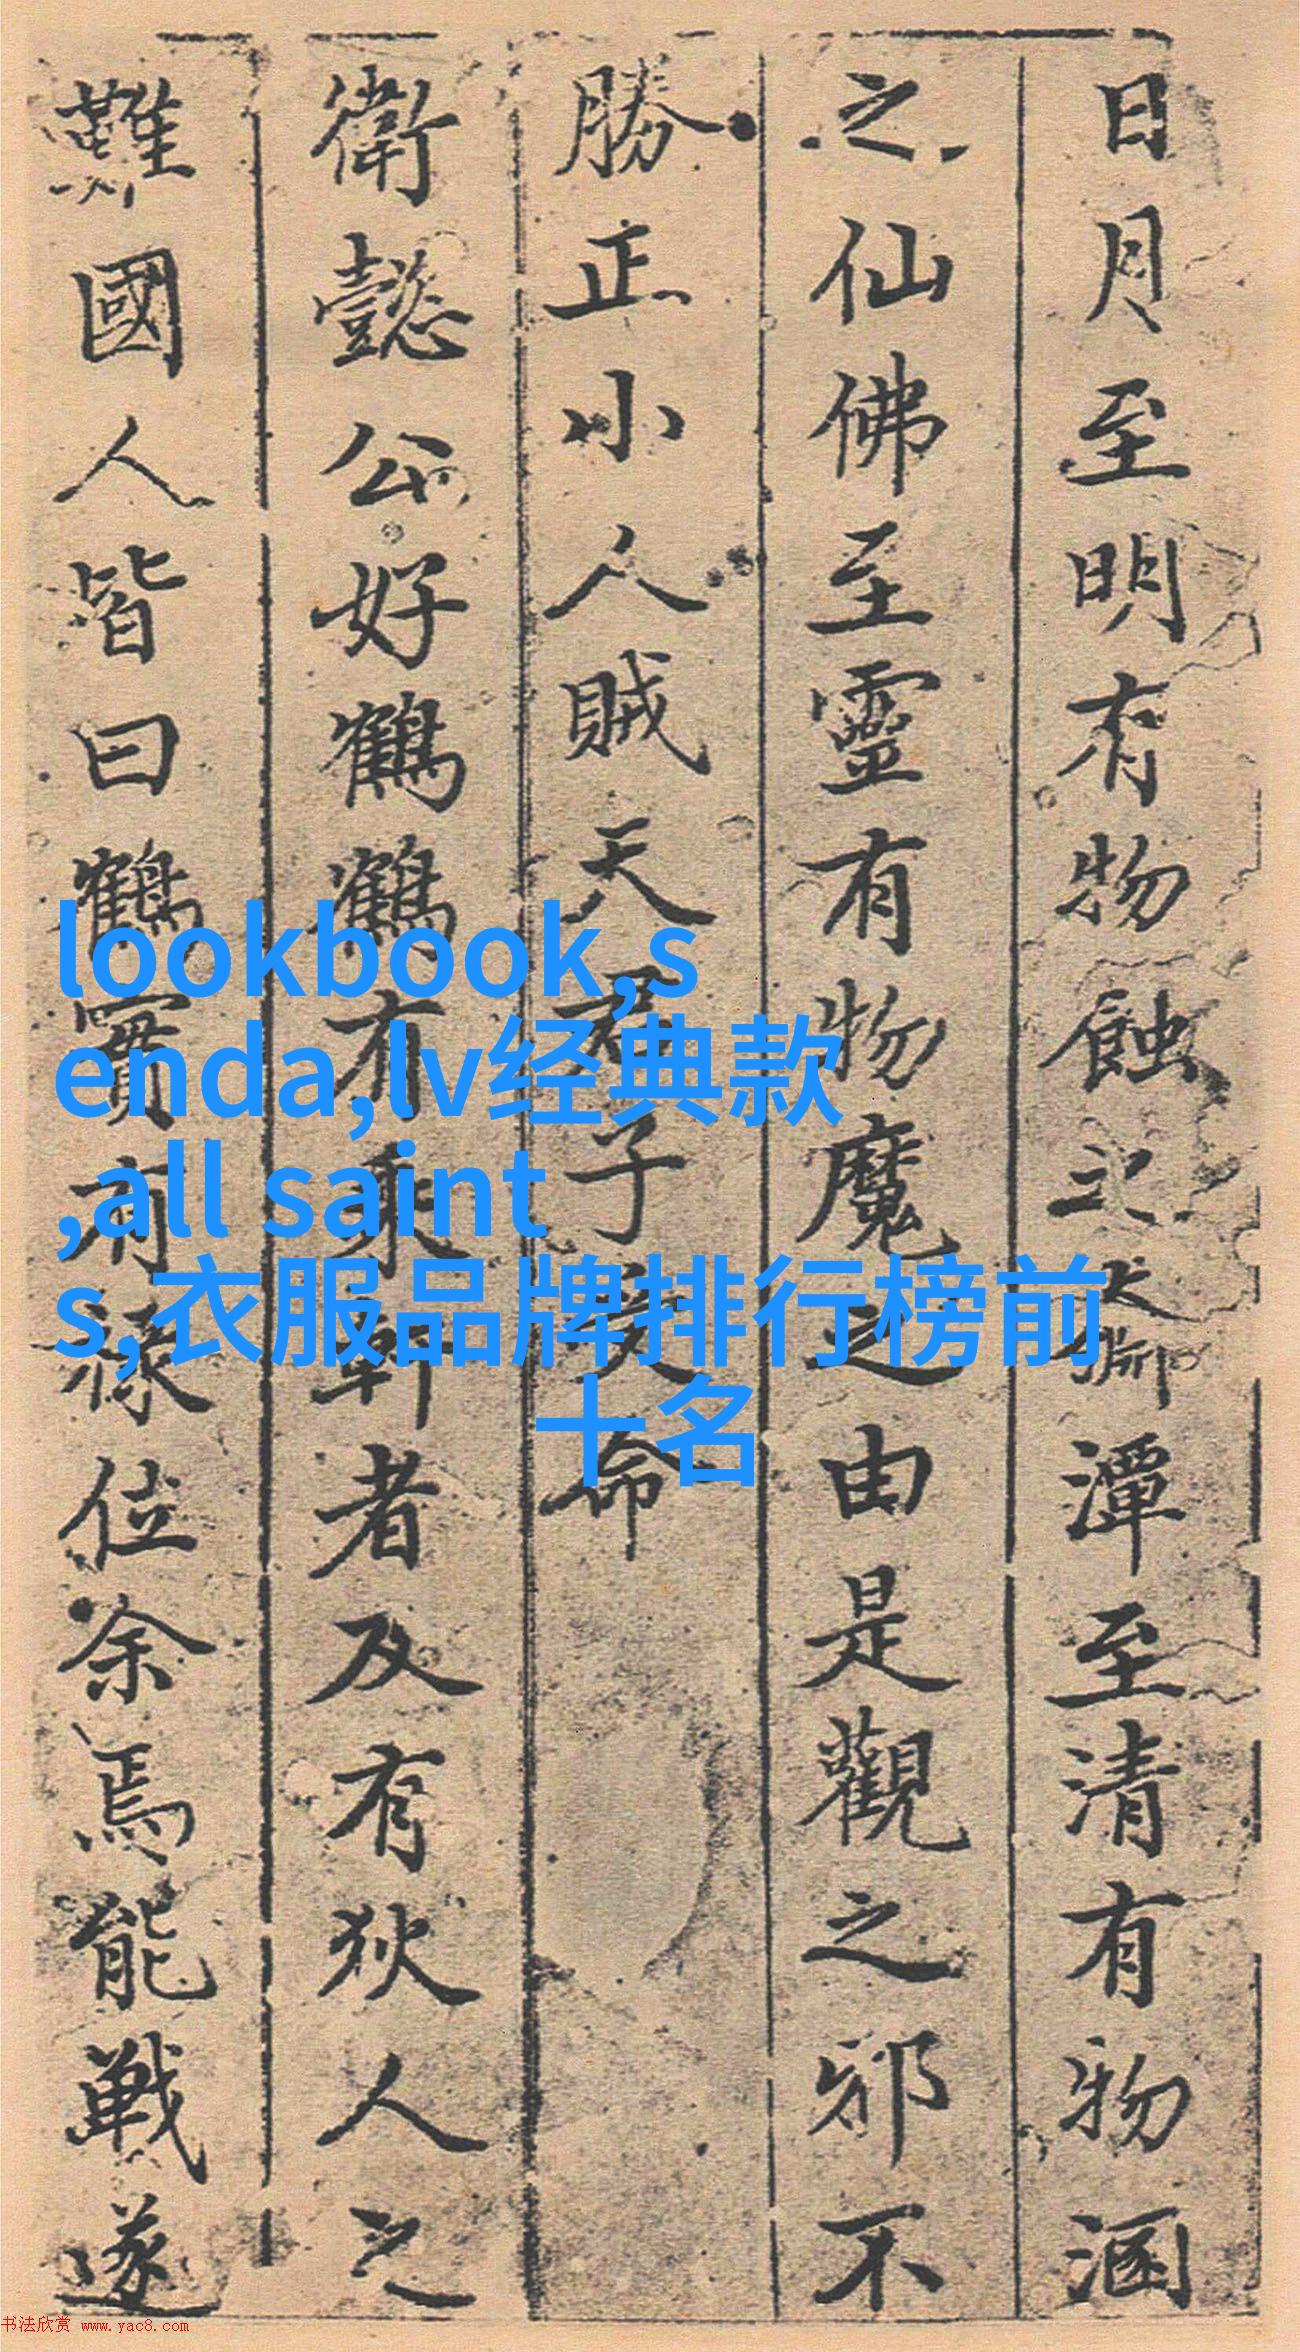 日月至明有物蝕之大㴾潭至清有物涵
之仙佛至靈有物魔之由是觀之邪不
勝正小人賊天君子受命
衛懿公好鶴鶴有乘軒者及有狄人之
難國人皆曰鶴實有祿位余焉能戰遂
lookbook,s
enda,lv经典款
,all saint
s,衣服品牌排行榜前
十名
书法欣赏 www.yac8.com